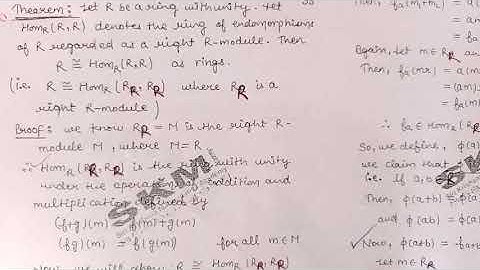 Theorem: Let R be a ring with unity. Let
Hom_R(R,R) denotes the ring of endomorphisms
of R regarded as a right R-module. Then
R ≅ Hom_R(R,R) as rings.
(i.e. R ≅ Hom_R(R_R, R_R) where R_R is a
right R-module)
Proof: we know R_R = M is the right R-
module M, where M = R
∴ Hom_R(R_R, R_R) is the ring with unity
under the operations addition and
multiplication defined by
(f+g)(m) = f(m)+g(m)
(fg)(m) = f(g(m)) for all m∈M
Now, we will show R ≅ Hom_R(R_R, R_R)
Then, f_a(m_1+m_2) =
= a
= f_a
Again, let m∈R_R an
Then, f_a(mr) = a(m
= (am)
= f_a(m
∴ f_a ∈ Hom_R(R
So, we define, φ(a)
we claim that
i.e. If a,b ∈ R
Then, φ(a+b) =
and φ(ab) =
Now, φ(a+b) = f_a+b
let m∈R
SKM